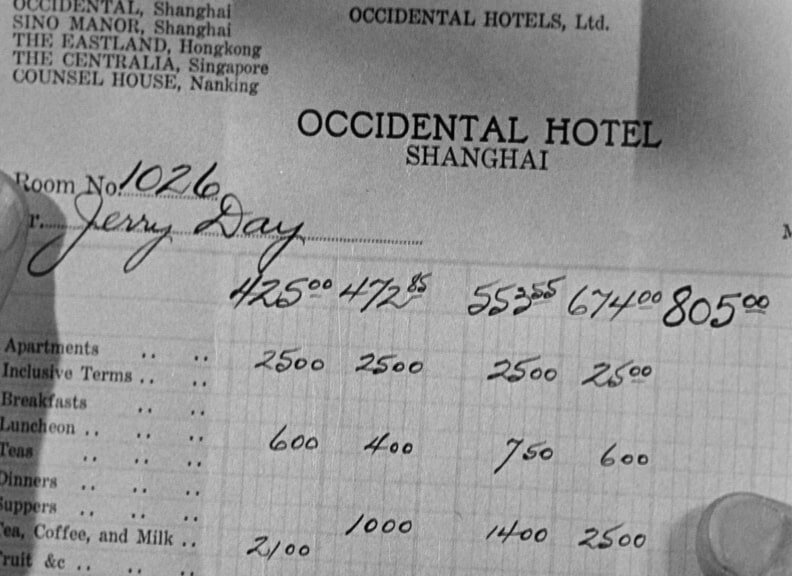 OCCIDENTAL, Shanghai
SINO MANOR, Shanghai
THE EASTLAND, Hongkong
THE CENTRALIA, Singapore
COUNSEL HOUSE, Nanking
OCCIDENTAL HOTELS, Ltd.
OCCIDENTAL HOTEL
SHANGHAI
Room No. 1026
r. Jerry Day
M
425 00 472 85 553 55 674 00 805 00
Apartments .. ..
Inclusive Terms .. .. 2500 2500 2500 25 00
Breakfasts .. ..
Luncheon .. .. .. 600 400 750 600
Teas .. .. ..
Dinners .. .. ..
Suppers .. .. ..
Tea, Coffee, and Milk .. 2100 1000 1400 2500
Fruit &c .. .. ..